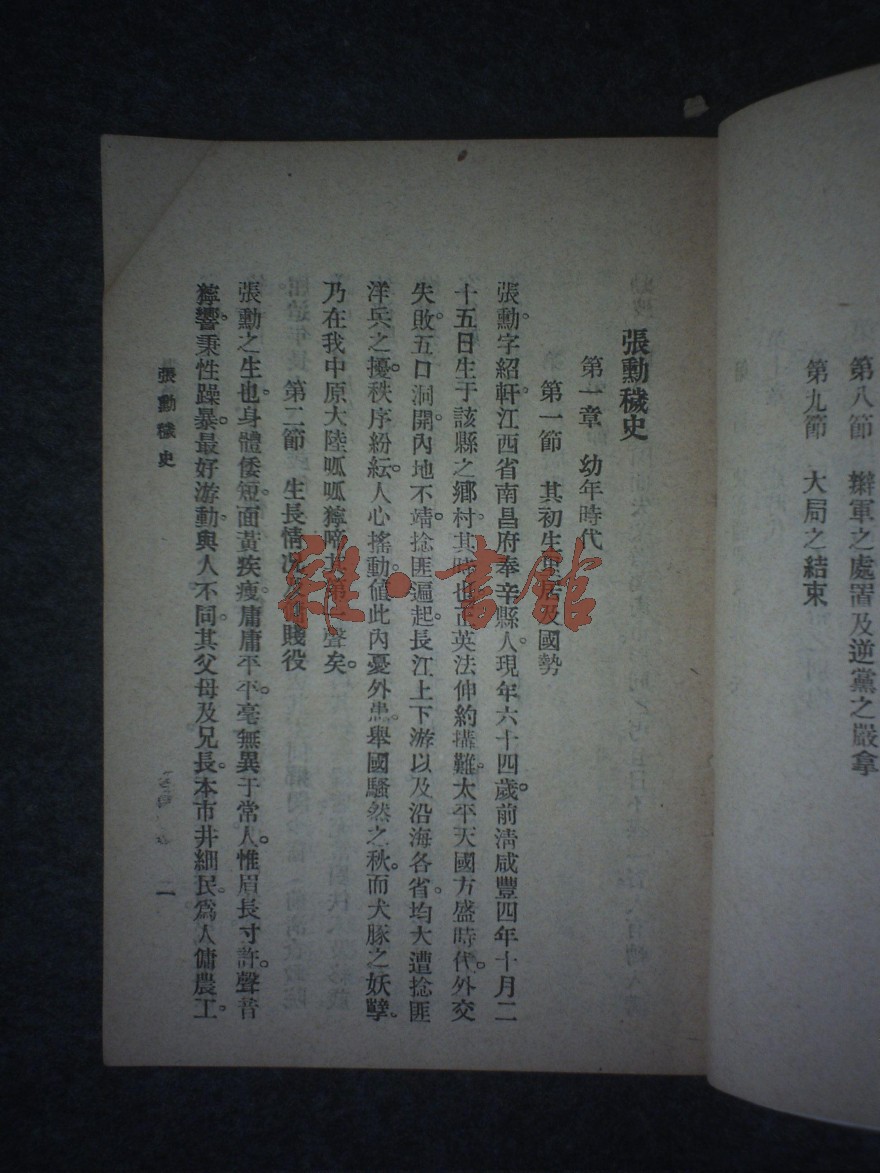 第八節　辮軍之處置及逆黨之嚴拿
第九節　大局之結束
張勳穢史
第一章　幼年時代
第一節　其初生里居及國勢
張勳字紹軒。江西省南昌府奉辛縣人。現年六十四歲。前淸咸豐四年十月二
十五日生于該縣之鄉村。其時也。英法伸約搆難。太平天國方盛時代。外交
失敗。五口洞開。內地不靖。捻匪遍起。長江上下游以及沿海各省。均大遭捻匪
洋兵之擾。秩序紛紜。人心搖動。値此內憂外患。舉國騷然之秋。而犬豚之妖孽。
乃在我中原大陸呱呱獰啼其第一聲矣。
第二節　生長情况及賤役
張勳之生也。身體倭短。面黃疾瘦。庸庸平平。毫無異于常人。惟眉長寸許。聲音
獰響。秉性躁暴。最好游動。與人不同。其父母及兄長。本市井細民。爲人傭農工。
張勳穢史
一
雜·書館